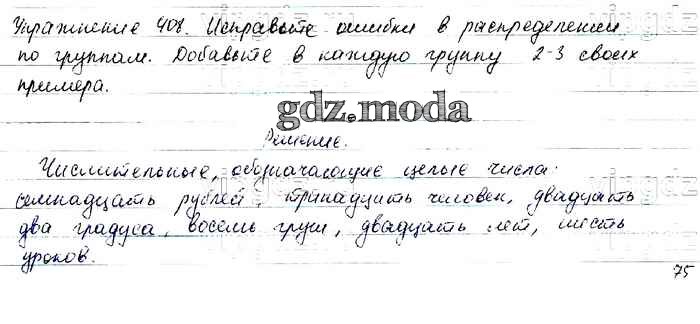 Упражнение 408. Исправьте ошибки в распределении
по группам. Добавьте в каждую группу 2-3 своих
примера.
gdz.moda
Решение.
Числительные, обозначающие целые числа:
семнадцать рублей тринадцать человек, двадцать
два градуса, восемь груш, двадцать лет, шесть
уроков.
75